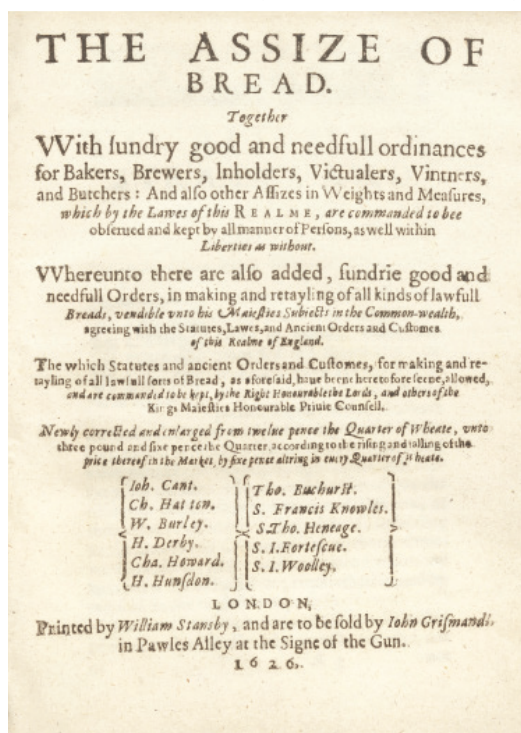 THE ASSIZE OF
BREAD.
Together
VVith ſundry good and needfull ordinances
for Bakers, Brewers, Inholders, Victualers, Vintners,
and Butchers : And alſo other Aſſizes in VVeights and Meaſures,
which by the Lawes of this REALME, are commanded to bee
obſerued and kept by all manner of Perſons, as well within
Liberties as without.
VVhereunto there are alſo added, ſundrie good and
needfull Orders, in making and retayling of all kinds of lawfull
Breads, vendible vnto his Maieſties Subiects in the Common-wealth,
agreeing with the Statutes, Lawes, and Ancient Orders and Cuſtomes
of this Realme of England.
The which Statutes and ancient Orders and Cuſtomes, for making and re-
tayling of all lawfull ſorts of Bread, as aforeſaid, haue beene heretofore ſeene, allowed,
and are commanded to be kept, by the Right Honourable the Lords, and others of the
Kings Maieſties Honourable Priuie Counſell.
Newly corrected and enlarged from twelue pence the Quarter of Wheate, vnto
three pound and ſixe pence the Quarter, according to the riſing and falling of the
price thereof in the Market, by ſixe pence altring in euery Quarter of Wheate.
Ioh. Cant.
Ch. Hatton.
W. Burley.
H. Derby.
Cha. Howard.
H. Hunſdon.
Tho. Buchurſt.
S. Francis Knowles.
S. Tho. Heneage.
S. I. Forteſcue.
S. I. Woolley.
LONDON,
Printed by William Stansby, and are to be ſold by Iohn Griſmand,
in Pawles Alley at the Signe of the Gun.
1626.